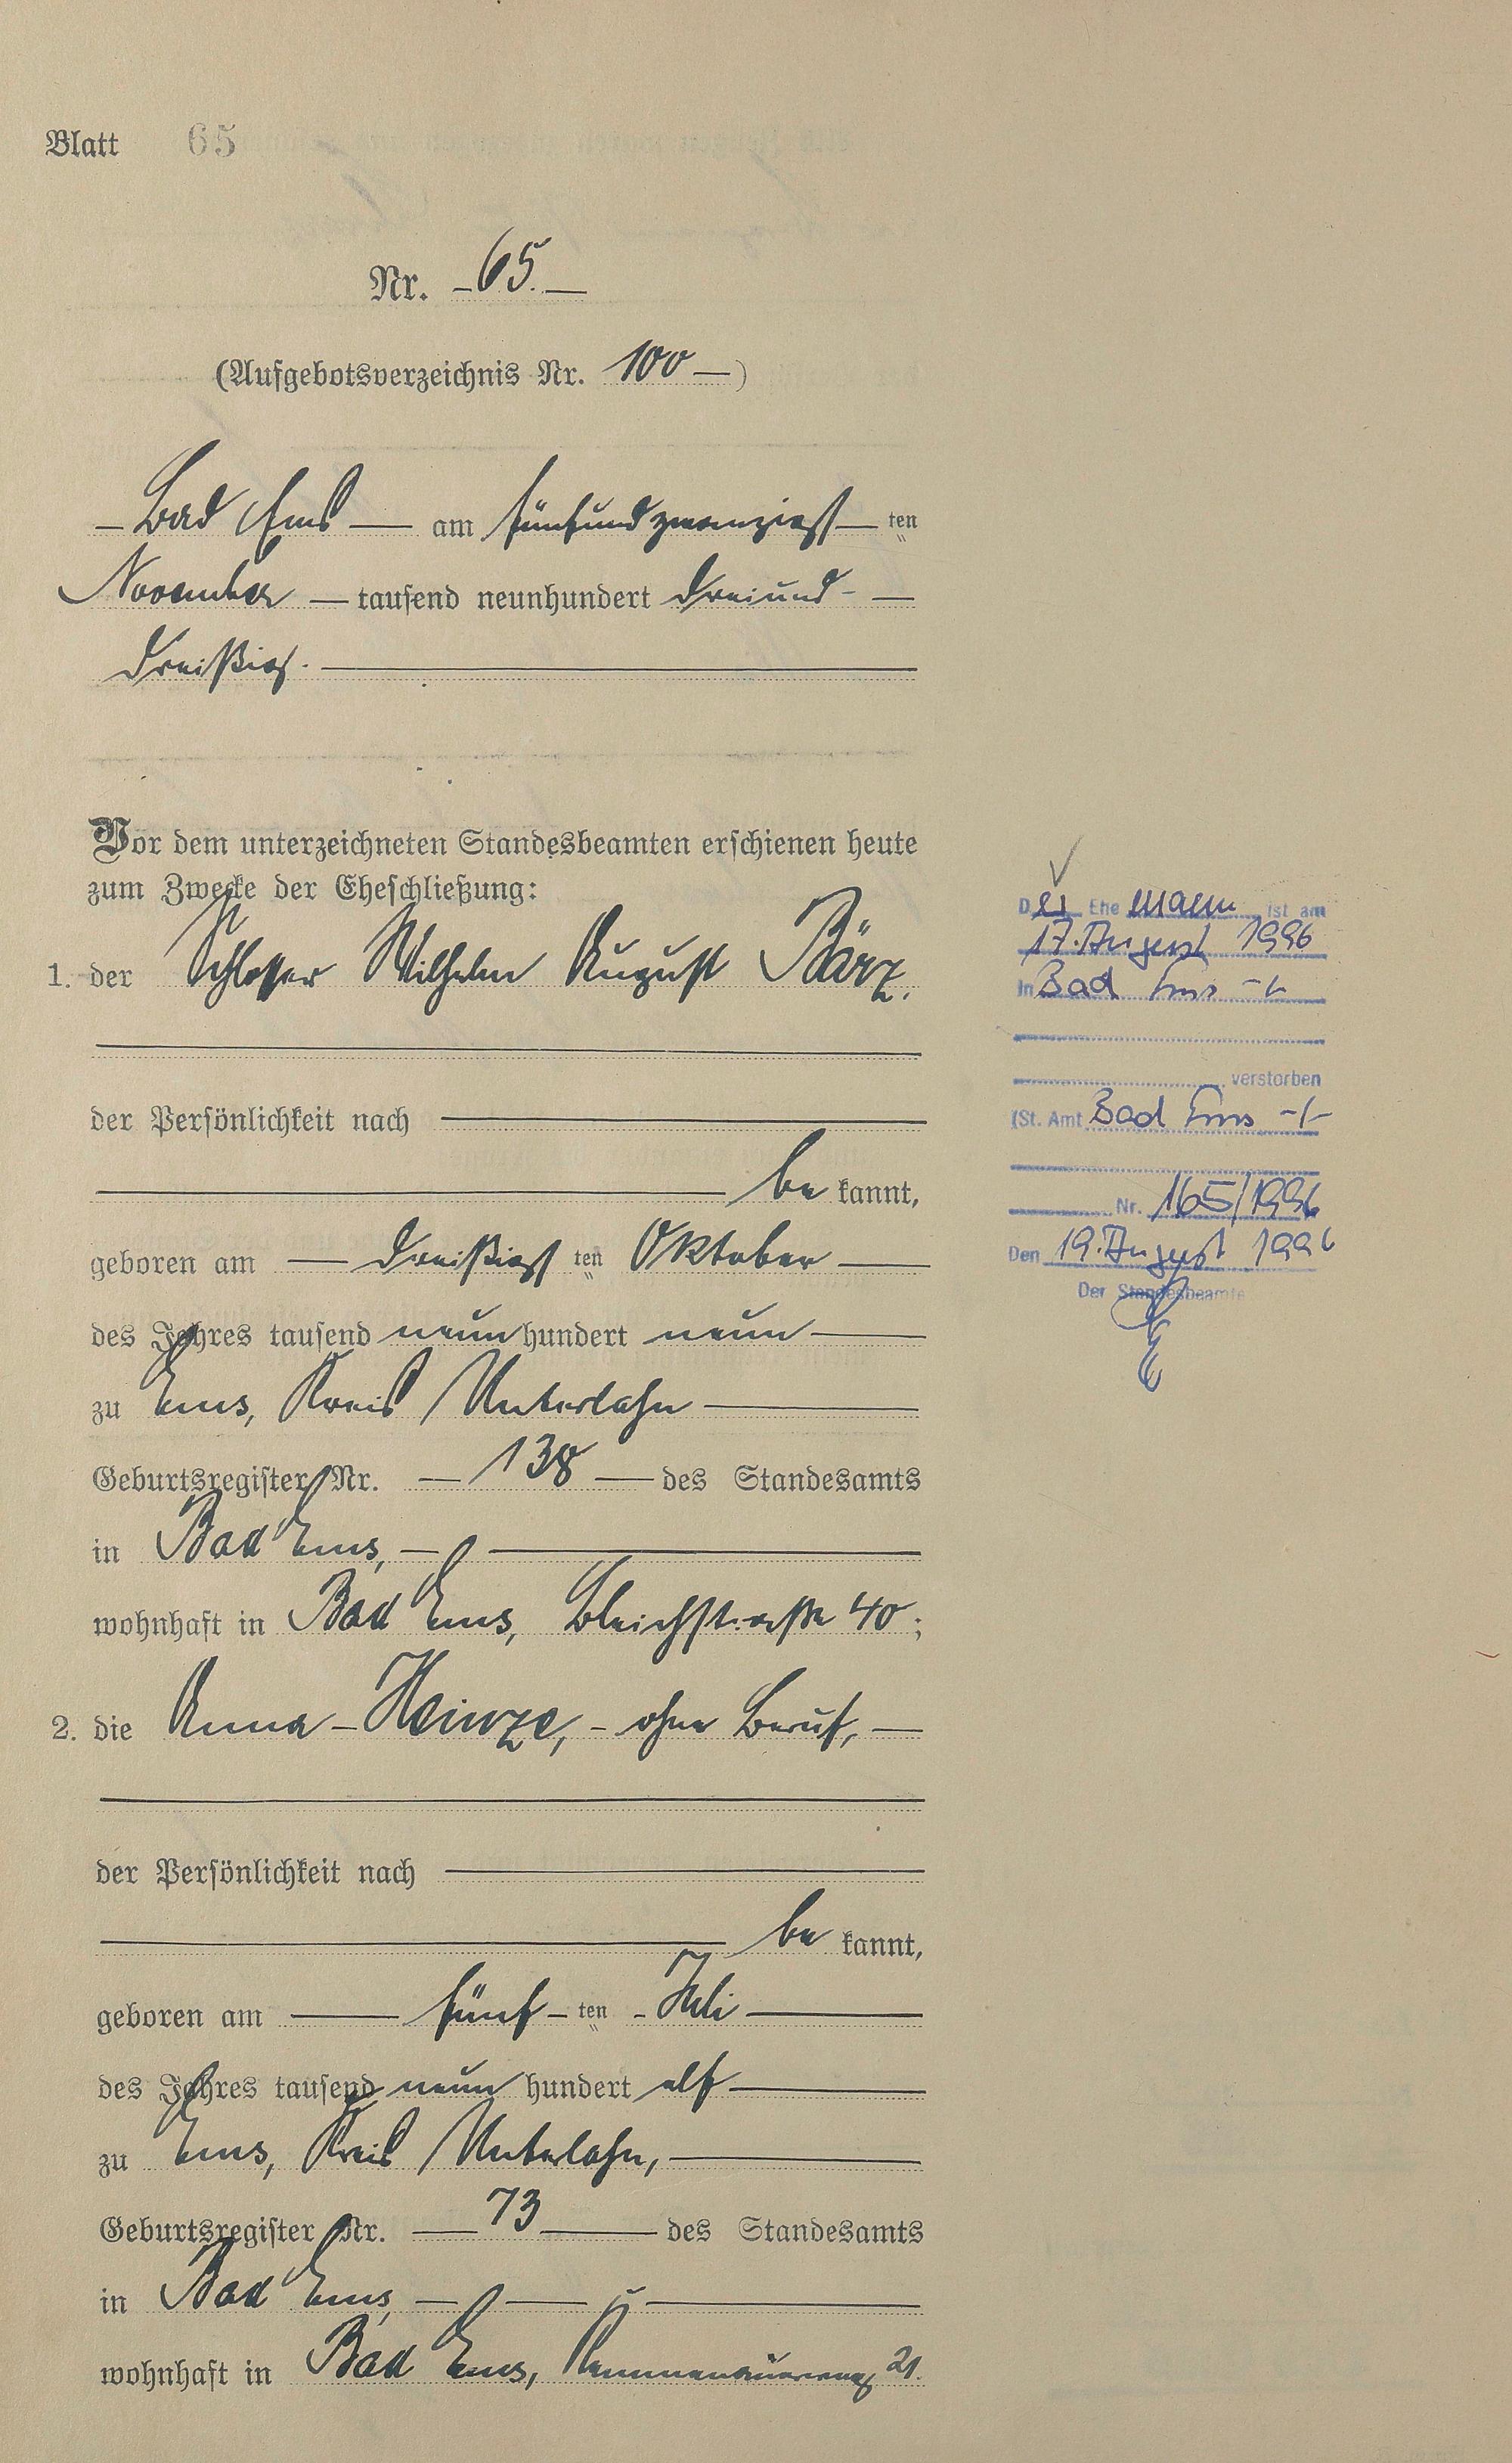 Blatt 65
Nr. – 65. –
(Aufgebotsverzeichnis Nr. 100 –)
– Bad Ems – am fünfundzwanzigst – ten
November – tausend neunhundert dreiund- –
dreißig. –
Vor dem unterzeichneten Standesbeamten erschienen heute
zum Zwecke der Eheschließung:
1. der Schlosser Wilhelm August Bärz.
der Persönlichkeit nach –
– be kannt,
geboren am – dreißigst ten Oktober –
des Jahres tausend neun hundert neun –
zu Ems, Kreis Unterlahn –
Geburtsregister Nr. – 138 – des Standesamts
in Bad Ems, –
wohnhaft in Bad Ems, Bleichstraße 40;
2. die Anna – Heinze, – ohne Beruf, –
der Persönlichkeit nach –
– be kannt,
geboren am – fünf – ten – Juli –
des Jahres tausend neun hundert elf –
zu Ems, Kreis Unterlahn, –
Geburtsregister Nr. – 73 – des Standesamts
in Bad Ems, –
wohnhaft in Bad Ems, Kemmenauerweg 21.
Der Ehe mann ist am
17. August 1996
in Bad Ems -/-
verstorben
(St. Amt Bad Ems -/-
Nr. 165/1996
Den 19. August 1996
Der Standesbeamte